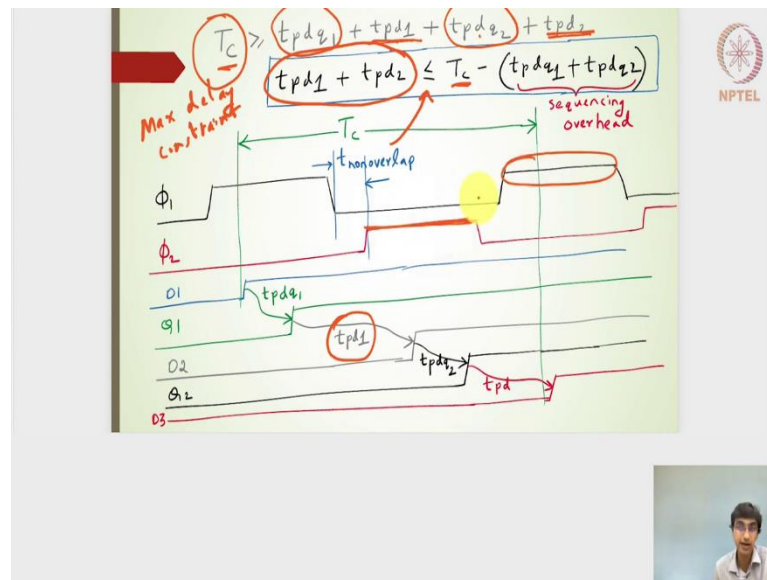 Tc ≥ tpdq1 + tpd1 + tpdq2 + tpd2
tpd1 + tpd2 ≤ Tc - (tpdq1 + tpdq2)
sequencing
overhead
Max delay
constraint
NPTEL
Tc
tnonoverlap
Φ1
Φ2
D1
tpdq1
Q1
tpd1
D2
tpdq2
Q2
tpd
D3